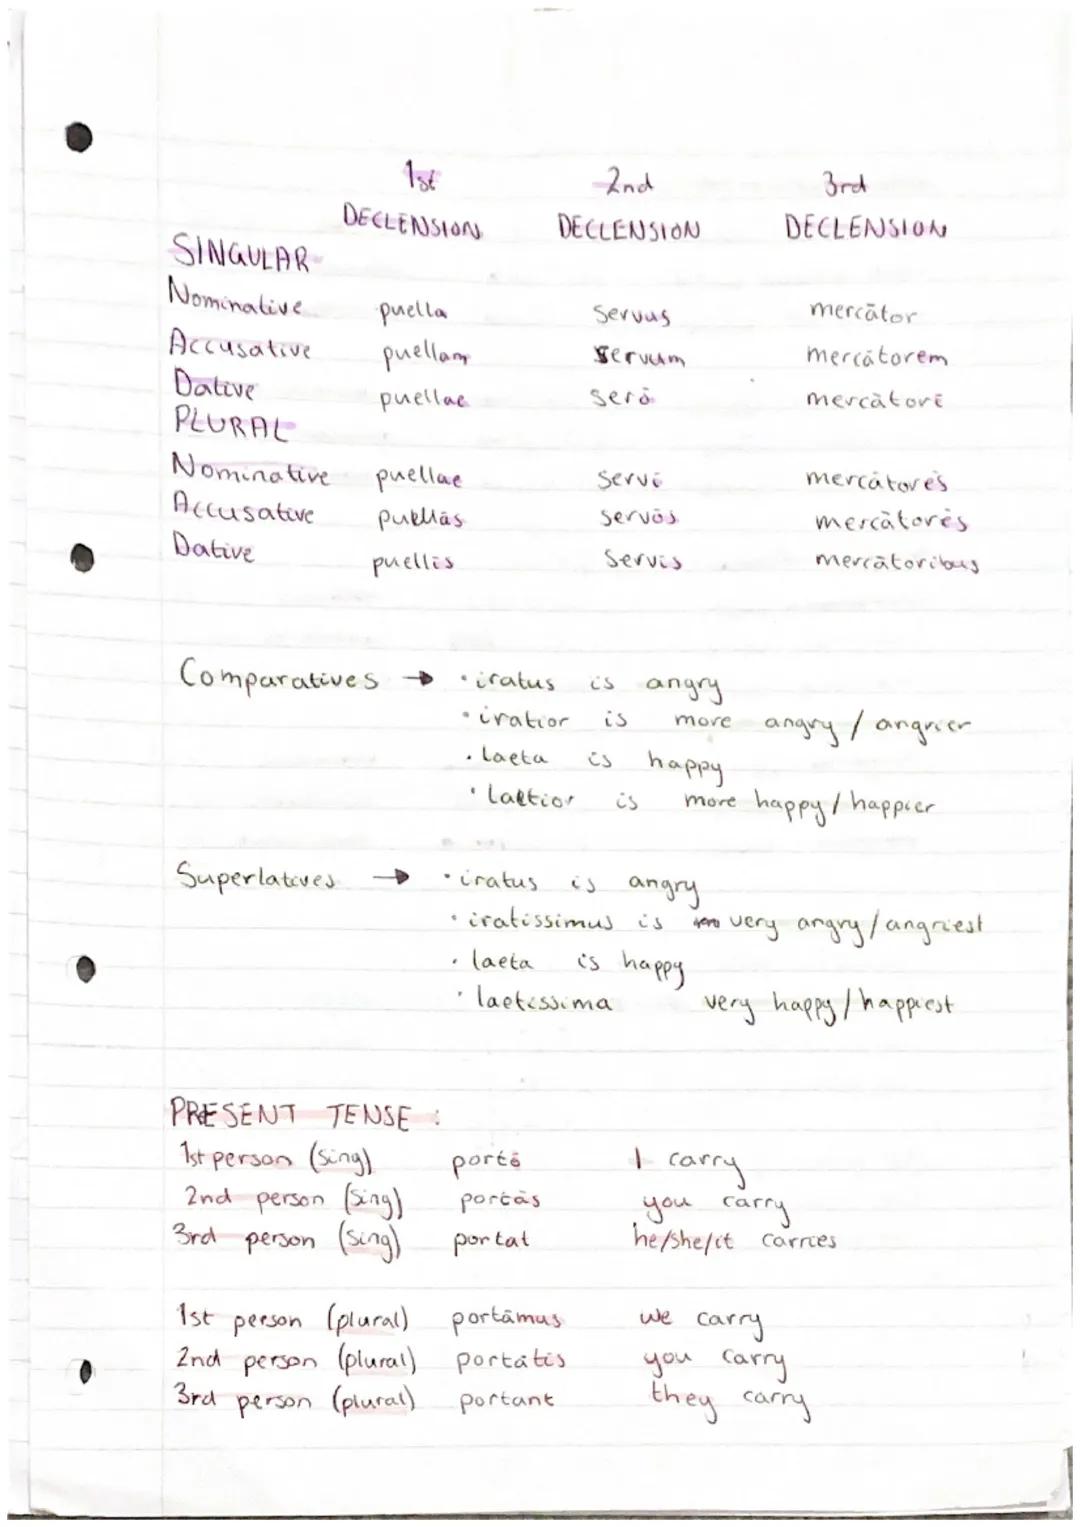 1st 2nd 3rd
DECLENSION DECLENSION DECLENSION
SINGULAR
Nominative puella servus mercātor
Accusative puellam servum mercātorem
Dative puellae serō mercātorī
PLURAL
Nominative puellae servī mercātorēs
Accusative puellās servōs mercātorēs
Dative puellīs servīs mercātoribus
Comparatives → • iratus is angry
• iratior is more angry / angrier
• laeta is happy
• laetior is more happy / happier
Superlatives → • iratus is angry
• iratissimus is very angry / angriest
• laeta is happy
• laetissima very happy / happiest
PRESENT TENSE :
1st person (sing) portō I carry
2nd person (sing) portās you carry
3rd person (sing) portat he/she/it carries
1st person (plural) portāmus we carry
2nd person (plural) portātis you carry
3rd person (plural) portant they carry